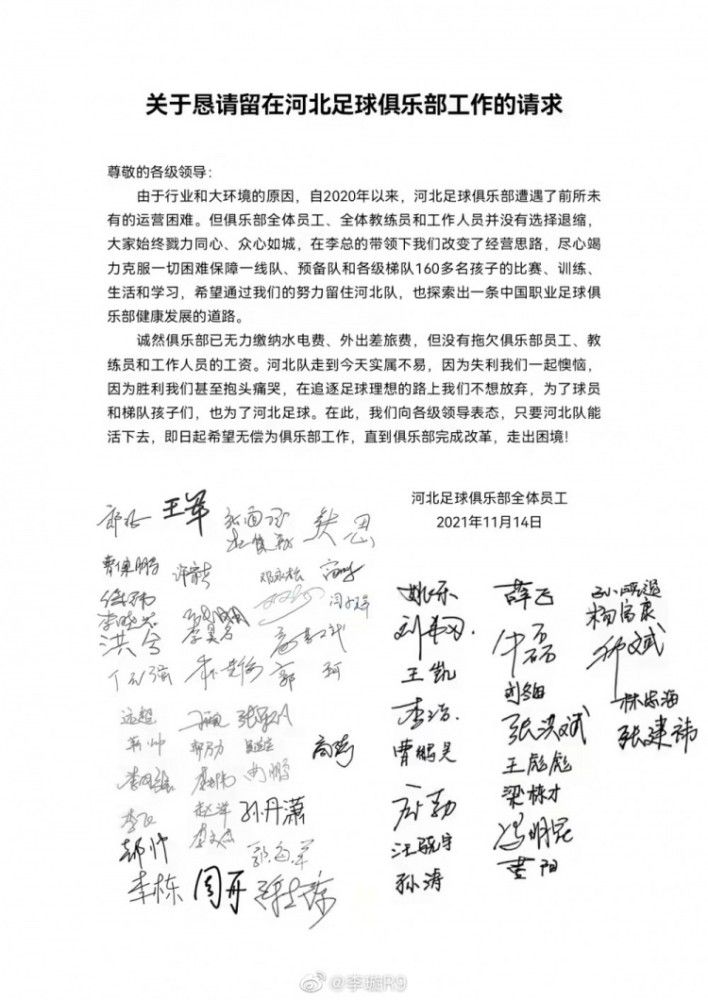 关于恳请留在河北足球俱乐部工作的请求
尊敬的各级领导：
由于行业和大环境的原因，自2020年以来，河北足球俱乐部遭遇了前所未
有的运营困难。但俱乐部全体员工、全体教练员和工作人员并没有选择退缩，
大家始终戮力同心、众心如城，在李总的带领下我们改变了经营思路，尽心竭
力克服一切困难保障一线队、预备队和各级梯队160多名孩子的比赛、训练、
生活和学习，希望通过我们的努力留住河北队，也探索出一条中国职业足球俱
乐部健康发展的道路。
诚然俱乐部已无力缴纳水电费、外出差旅费，但没有拖欠俱乐部员工、教
练员和工作人员的工资。河北队走到今天实属不易，因为失利我们一起懊恼，
因为胜利我们甚至抱头痛哭，在追逐足球理想的路上我们不想放弃，为了球员
和梯队孩子们，也为了河北足球。在此，我们向各级领导表态，只要河北队能
活下去，即日起希望无偿为俱乐部工作，直到俱乐部完成改革，走出困境！
河北足球俱乐部全体员工
2021年11月14日
王军
洪兮
郭珂
远超
孙丹潇
李栋 周开
姚乐 薛飞
杨富康
王凯
李浩
林志海
曹鹏昊 张洪斌 张建祎
王彪彪
梁栋才
汪骁宇 冯明昆
孙涛 黄阳
@李璇R9